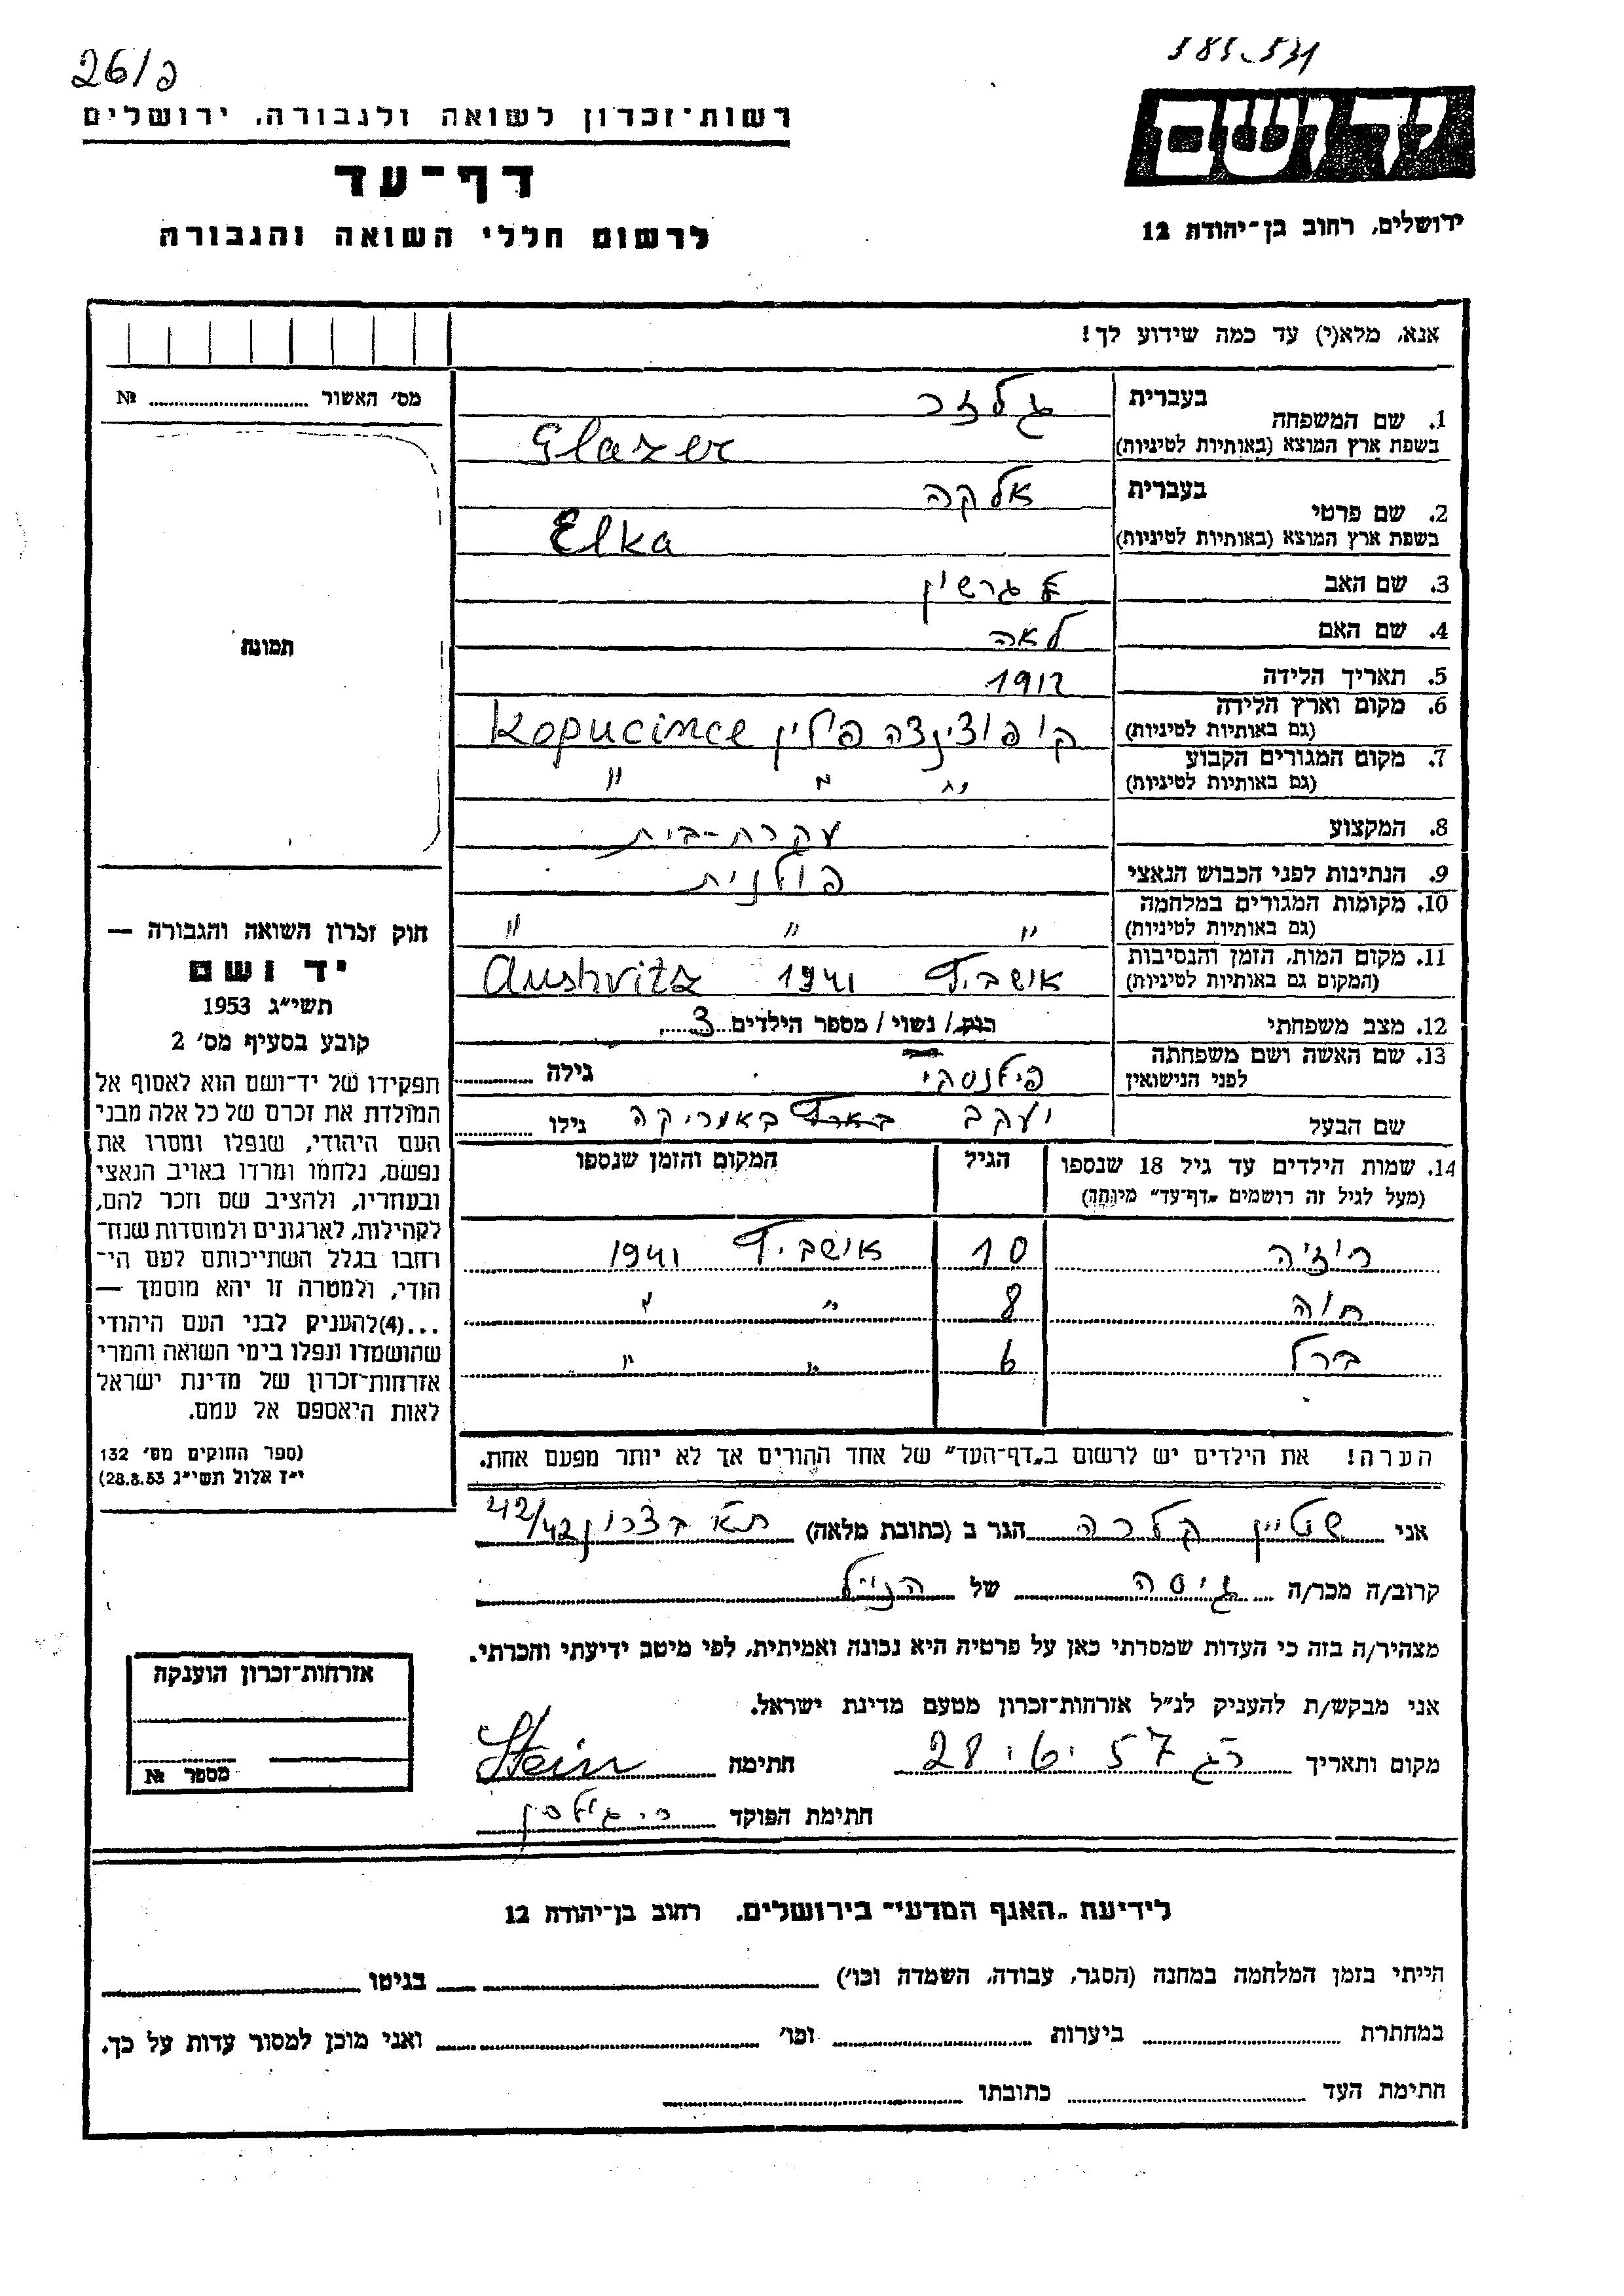 26/פ
רשות־זכרון לשואה ולגבורה, ירושלים
דף־עד
לרשום חללי השואה והגבורה
יד ושם
ירושלים, רחוב בן־יהודה 12
אנא, מלא(י) עד כמה שידוע לך!
מס' האשור № 
תמונה
חוק זכרון השואה והגבורה —
יד ושם
תשי"ג 1953
קובע בסעיף מס' 2
תפקידו של יד־ושם הוא לאסוף אל
המולדת את זכרם של כל אלה מבני
העם היהודי, שנפלו ומסרו את
נפשם, נלחמו ומרדו באויב הנאצי
ובעוזריו, ולהציב שם וזכר להם,
לקהילות, לארגונים ולמוסדות שנח־
רובו בגלל השתייכותם לעם הי־
הודי, ולמטרה זו יהא מוסמך —
...(4)להעניק לבני העם היהודי
שהושמדו ונפלו בימי השואה והמרי
אזרחות־זכרון של מדינת ישראל
לאות היאספם אל עמם.
(ספר החוקים מס' 132
י"ז אלול תשי"ג 28.8.53)
בעברית גלזר
1. שם המשפחה
בשפת ארץ המוצא (באותיות לטיניות) Glazer
בעברית אלקה
2. שם פרטי
בשפת ארץ המוצא (באותיות לטיניות) Elka
3. שם האב גרשון
4. שם האם לאה
5. תאריך הלידה 1912
6. מקום וארץ הלידה
(גם באותיות לטיניות) קופוצינצה פולין Kopucince
7. מקום המגורים הקבוע
(גם באותיות לטיניות) " " "
8. המקצוע עקרת-בית
9. הנתינות לפני הכבוש הנאצי פולנית
10. מקומות המגורים במלחמה
(גם באותיות לטיניות) " " "
11. מקום המות, הזמן והנסיבות
(המקום גם באותיות לטיניות) אושביץ 1941 Aushvitz
12. מצב משפחתי רוק/ נשוי/ מספר הילדים 3
13. שם האשה ושם משפחתה
לפני הנישואין פילנסקי גילה
שם הבעל יעקב באמריקה גילו
14. שמות הילדים עד גיל 18 שנספו הגיל המקום והזמן שנספו
(מעל לגיל זה רושמים "דף־עד" מיוחד)
רוזיה 10 אושביץ 1941
חוה 8 " "
ברל 6 " "
הערה! את הילדים יש לרשום ב"דף־העד" של אחד ההורים אך לא יותר מפעם אחת.
אני שטיין קלרה הגר ב (כתובת מלאה) ת"א בצרון 42/42
קרוב/ה מכר/ה גיסה של הנ"ל
מצהיר/ה בזה כי העדות שמסרתי כאן על פרטיה היא נכונה ואמיתית, לפי מיטב ידיעתי והכרתי.
אני מבקש/ת להעניק לנ"ל אזרחות־זכרון מטעם מדינת ישראל.
מקום ותאריך רג 28.6.57 חתימה Stein
חתימת הפוקד
אזרחות־זכרון הוענקה
מספר №
לידיעת "האגף המדעי" בירושלים, רחוב בן־יהודה 12
הייתי בזמן המלחמה במחנה (הסגר, עבודה, השמדה וכו') בגיטו
במחתרת ביערות וכו' ואני מוכן למסור עדות על כך.
חתימת העד כתובתו